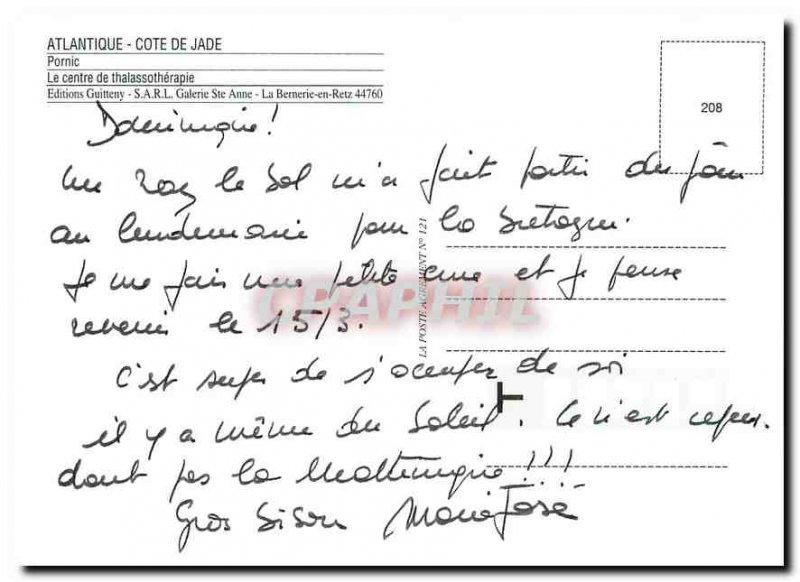 ATLANTIQUE - COTE DE JADE
Pornic
Le centre de thalassothérapie
Editions Guitteny - S.A.R.L. Galerie Ste Anne - La Bernerie-en-Retz 44760
208
LA POSTE AGREMENT N° 121
Dominique !
Un ras le bol m'a fait partir du jour
au lendemain pour la Bretagne.
Je me fais une petite cure et je pense
revenir le 15/3.
C'est super de s'occuper de soi
il y a même du Soleil. Ce n'est cepen-
dant pas la Martinique !!!
Gros Bisou Marie José
GRAPHIL